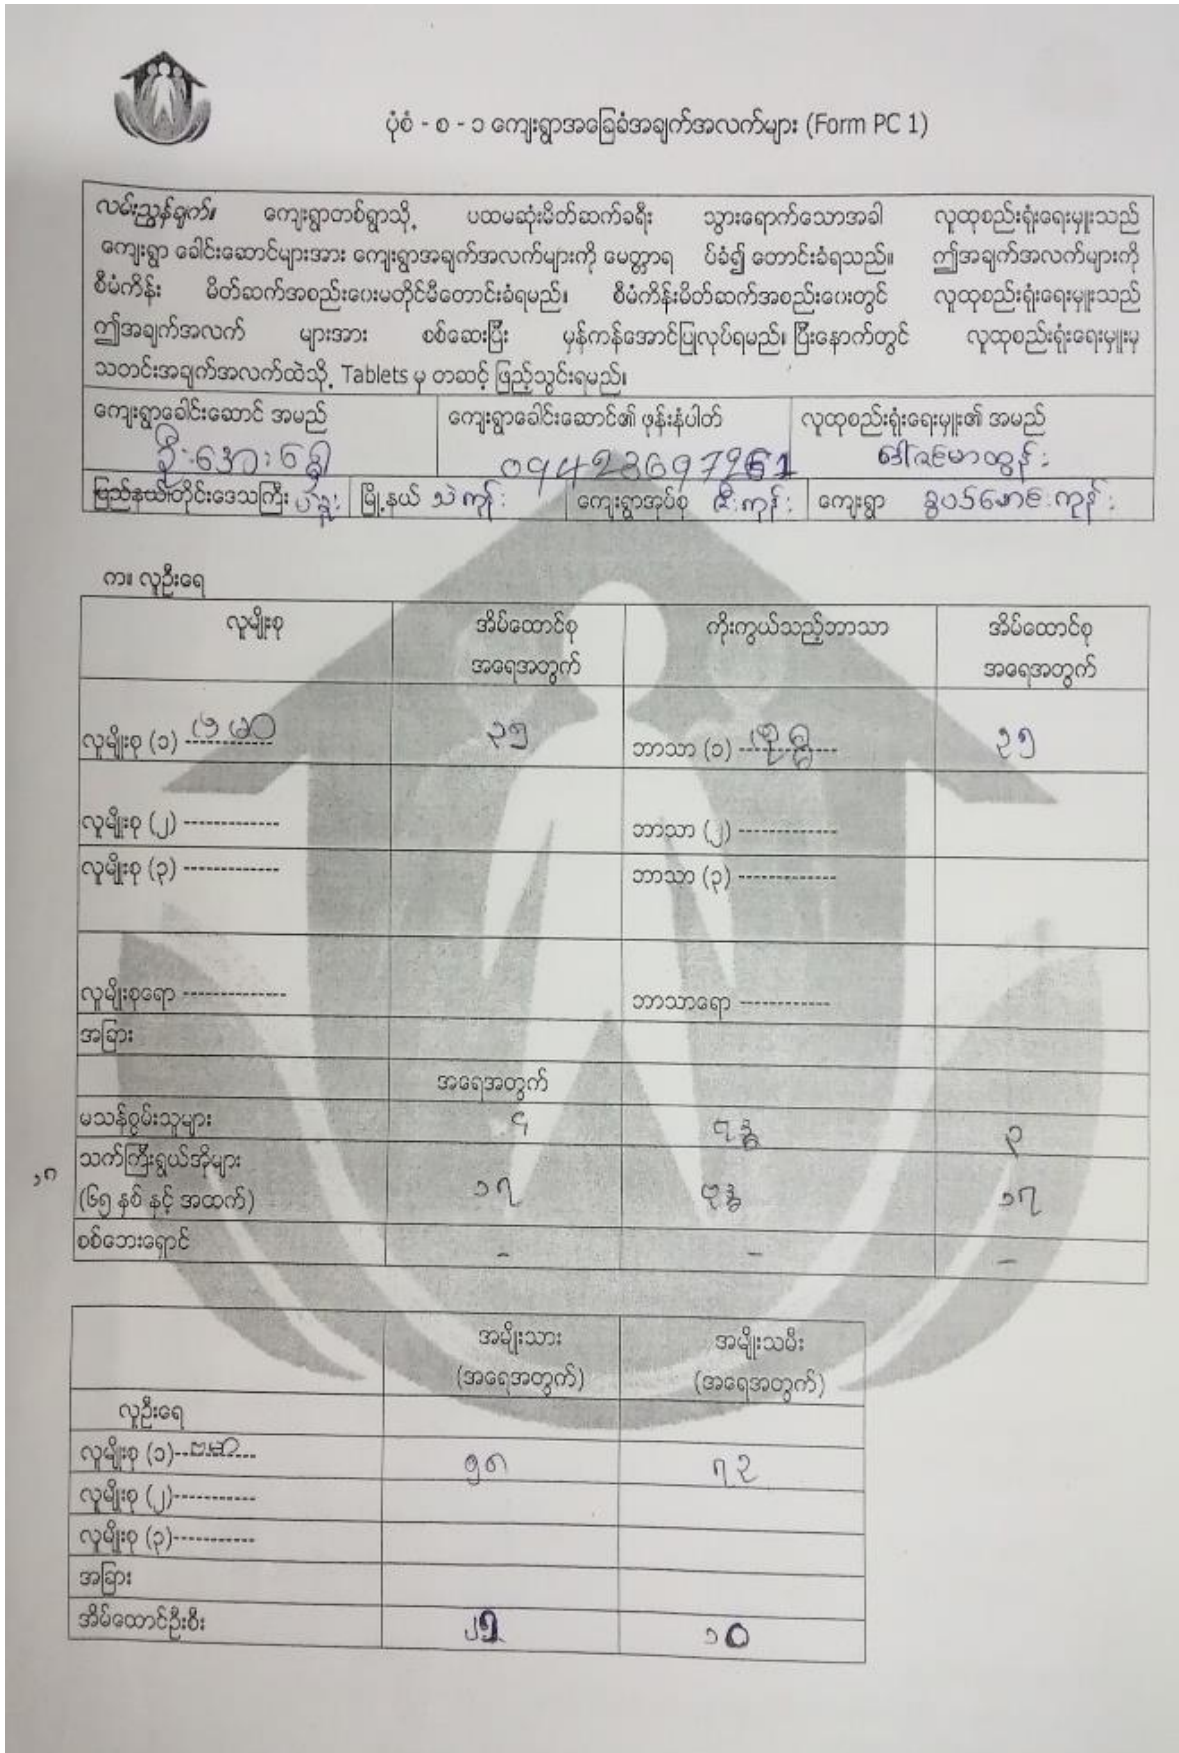 ပုံစံ - စ - ၁ ကျေးရွာအခြေခံအချက်အလက်များ (Form PC 1)
လမ်းညွှန်ချက်။ ကျေးရွာတစ်ရွာသို့ ပထမဆုံးမိတ်ဆက်ခရီး သွားရောက်သောအခါ လူထုစည်းရုံးရေးမှူးသည်
ကျေးရွာ ခေါင်းဆောင်များအား ကျေးရွာအချက်အလက်များကို မေတ္တာရ ပ်ခံ၍ တောင်းခံရသည်။ ဤအချက်အလက်များကို
စီမံကိန်း မိတ်ဆက်အစည်းဝေးမတိုင်မီတောင်းခံရမည်။ စီမံကိန်းမိတ်ဆက်အစည်းဝေးတွင် လူထုစည်းရုံးရေးမှူးသည်
ဤအချက်အလက် များအား စစ်ဆေးပြီး မှန်ကန်အောင်ပြုလုပ်ရမည်။ ပြီးနောက်တွင် လူထုစည်းရုံးရေးမှူးမှ
သတင်းအချက်အလက်ထဲသို့ Tablets မှ တဆင့် ဖြည့်သွင်းရမည်။
ကျေးရွာခေါင်းဆောင် အမည် ကျေးရွာခေါင်းဆောင်၏ ဖုန်းနံပါတ် လူထုစည်းရုံးရေးမှူး၏ အမည်
09423697261
ပြည်နယ်/တိုင်းဒေသကြီး ပဲခူး မြို့နယ် သဲကုန်း ကျေးရွာအုပ်စု ဇီးကုန်း ကျေးရွာ
က။ လူဦးရေ
လူမျိုးစု အိမ်ထောင်စု ကိုးကွယ်သည့်ဘာသာ အိမ်ထောင်စု
အရေအတွက် အရေအတွက်
လူမျိုးစု (၁) ဗမာ ၃၅ ဘာသာ (၁) ဗုဒ္ဓ ၃၅
လူမျိုးစု (၂) ------------- ဘာသာ (၂) -------------
လူမျိုးစု (၃) ------------- ဘာသာ (၃) -------------
လူမျိုးစုရော -------------- ဘာသာရော ------------
အခြား
အရေအတွက်
မသန်စွမ်းသူများ ၄ ဗုဒ္ဓ ၃
သက်ကြီးရွယ်အိုများ
(၆၅ နှစ် နှင့် အထက်) ၁၇ ဗုဒ္ဓ ၁၇
၁၈
စစ်ဘေးရှောင် - - -
အမျိုးသား အမျိုးသမီး
(အရေအတွက်) (အရေအတွက်)
လူဦးရေ
လူမျိုးစု (၁)--ဗမာ-- ၅၈ ၇၃
လူမျိုးစု (၂)-----------
လူမျိုးစု (၃)-----------
အခြား
အိမ်ထောင်ဦးစီး ၂၅ ၁၀